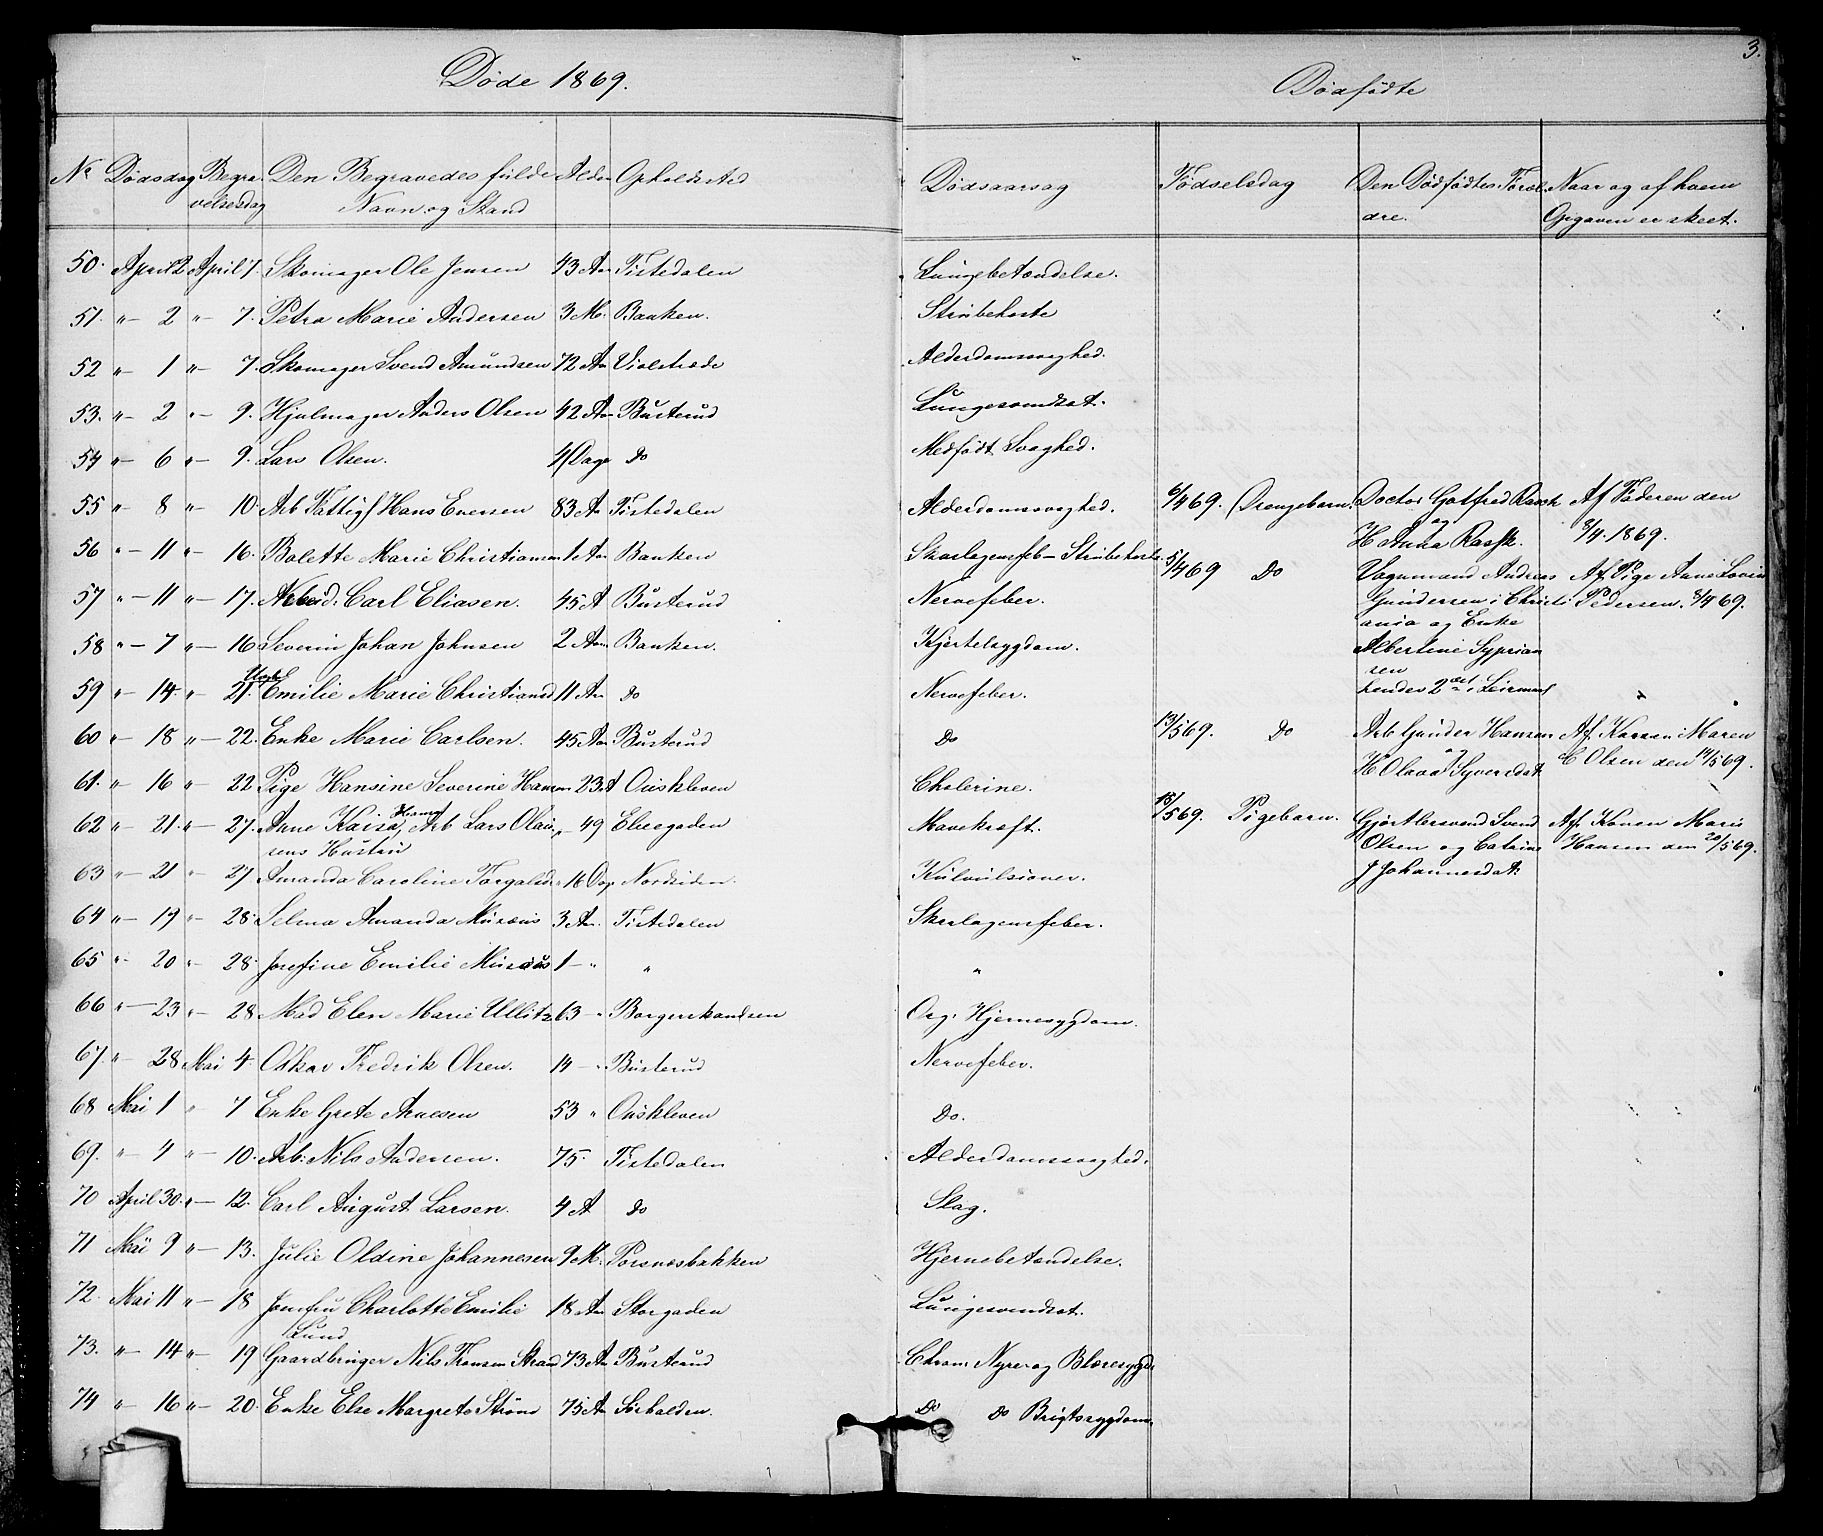 3.
Døde 1869.
Dødfødte
No Dødsdag Begra- Den Begravedes fulde Alder Opholdssted Dødsaarsag Fødselsdag Den Dødfødtes Foræl- Naar og af hvem
velsesdag Navn og Stand dre. Opgaven er skeet.
50. April 2 April 7. Skomager Ole Jensen 43 Aar Tistedalen Lungebetændelse.
51. " 2 " 7. Petra Marie Andersen 3 M. Banken. Strubehoste
52 " 1 " 7. Skomager Svend Amundsen 72 Aar Violstræde Alderdomssvaghed.
53. " 2 " 9. Hjulmager Anders Olsen 42 Aar Busterud Lungesvindsot.
54 " 6 " 9. Lars Olsen. 4 Dage do Medfødt Svaghed.
55 " 8 " 10. Arb Fattigl Hans Evensen 83 A Tistedalen Alderdomssvaghed. 6/4 69. Drengebarn. Doctor Gotfred Rasch Af Faderen den
og
H Anna Rasch. 8/4. 1869.
56 " 11 " 16. Bolette Marie Christiansen 1 Aar Banken Skarlagensfeber Strubehoste 5/4 69 Do Vognmand Andreas Af Pige Anne Lovise
57 " 11 " 17. Arbeid. Carl Eliasen. 45 A Busterud Nervefeber. Gundersen i Christi Pedersen. 8/4 69.
ania og Enke
58 " 7 " 16 Severin Johan Johnsen 2 Aar Banken. Kjertelsygdom. Albertine Syprian
sen
59 " 14. " 21. Ugift Emilie Marie Christiansd 11 Aar do Nervefeber. hendes 2det i Leiermaal
60 " 18 " 22. Enke Marie Carlsen. 45 Aar Busterud Do 13/5 69. Do Arb Gunder Hansen Af Konen Maren
og
H Olava Syversdat C Olsen den 14/5 69.
61. " 16 " 22 Pige Hansine Severine Hansen 23 A Ouskleven Cholerine.
62 " 21. " 27. Anne Kaisa Hansd, Arb Lars Olau " 49 Eliegaden Mavekræft. 15/5 69. Pigebarn. Gjørtlersvend Svend Af Konen Maria
sens Hustru Olsen og Catrine Hansen den 20/5 69.
63 " 21 " 27 Amanda Caroline Torgalsd " 18 Dag Nordsiden. Kulvulsioner. J Johannesdat.
64 " 19 " 28. Selma Amanda Musæus 3 Aar. Tistedalen Skarlagensfeber.
65 " 20 " 28. Josefine Emilie Musæus 1 " " "
66 " 23 " 28 Mad Elen Marie Ullitz 63 " Borgerskandsen Org. Hjernesygdom.
67. " 28 Mai 4. Oskar Fredrik Olsen. 14 " Busterud Nervefeber.
68 Mai 1 " 7 Enke Grete Arnesen 53 " Ouskleven Do.
69. " 4 " 10. Arb: Nils Andersen. 75. Tistedalen Alderdomssvaghed.
70 April 30. " 12. Carl August Larsen. 4 A do Slag.
71 Mai 9 " 13. Julie Oldine Johannesen 9 M. Porsnæsbakken Hjernebetændelse.
72. Mai 11 " 18 Jomfru Charlotte Emilie 18 Aar Storgaden Lungesvindsot.
Lund
73. " 14 " 19 Gaardbruger Nils Fransen Strand 73 Aar Busterud Chron. Nyre og Blæresygd.
74 " 16 " 20. Enke Else Margrete Strøm 75 Aar Sørhalden. Do do Brigtssygdom.